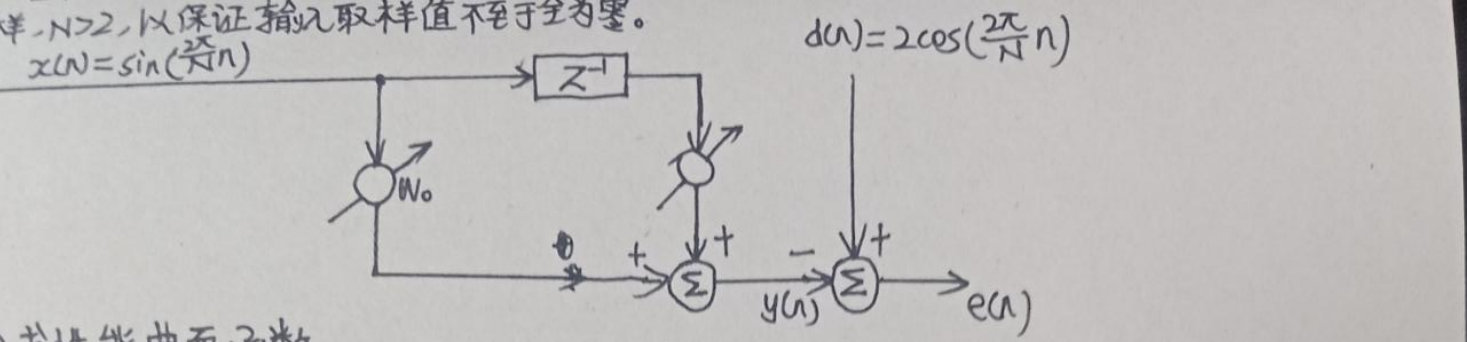 样,N>2,以保证输入取样值不至于全为零。
x(n)=sin(2π/N n)
d(n)=2cos(2π/N n)
Z⁻¹
W₀
+ + − +
Σ Σ
y(n) e(n)